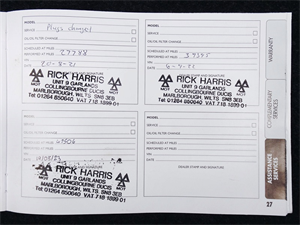 MODEL
SERVICE
Plugs changed
OIL/OIL FILTER CHANGE
SCHEDULED AT MILES
PERFORMED AT MILES 27788
DATE 20-8-21
RICK HARRIS
UNIT 9 GARLANDS
COLLINGBOURNE DUCIS
MARLBOROUGH, WILTS SN8 3EB
Tel: 01264 850640 VAT 718 1899 01
MOT
MODEL
SERVICE
OIL/OIL FILTER CHANGE
SCHEDULED AT MILES
PERFORMED AT MILES
DATE
RICK HARRIS
UNIT 9 GARLANDS
COLLINGBOURNE DUCIS
MARLBOROUGH, WILTS SN8 3EB
Tel: 01264 850640 VAT 718 1899 01
MOT
MODEL
SERVICE
OIL/OIL FILTER CHANGE
SCHEDULED AT MILES
PERFORMED AT MILES
DATE
RICK HARRIS
UNIT 9 GARLANDS
COLLINGBOURNE DUCIS
MARLBOROUGH, WILTS SN8 3EB
Tel: 01264 850640 VAT 718 1899 01
MOT
MODEL
SERVICE
OIL/OIL FILTER CHANGE
SCHEDULED AT MILES
PERFORMED AT MILES
DATE
DEALER STAMP AND SIGNATURE
WARRANTY
COMPLIMENTARY
SERVICES
ASSISTANCE
SERVICES
27